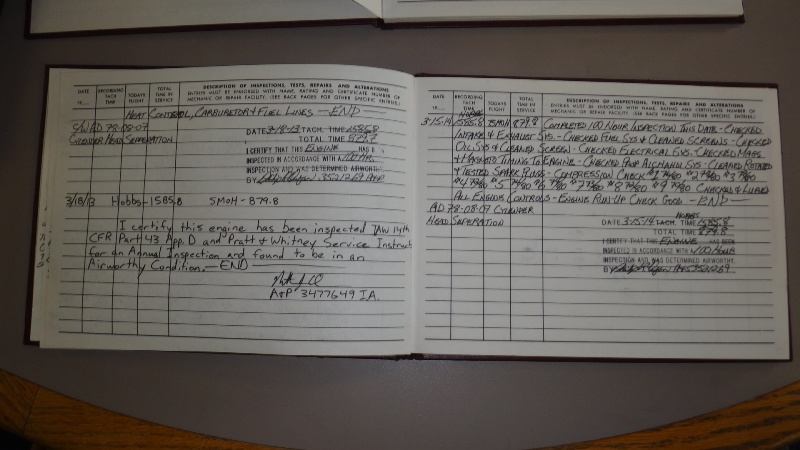 DATE
19
RECORDING TACH TIME
TODAYS FLIGHT
TOTAL TIME IN SERVICE
DESCRIPTION OF INSPECTIONS, TESTS, REPAIRS AND ALTERATIONS
ENTRIES MUST BE ENDORSED WITH NAME, RATING AND CERTIFICATE NUMBER OF
MECHANIC OR REPAIR FACILITY. (SEE BACK PAGES FOR OTHER SPECIFIC ENTRIES.)
HEAT CONTROL, CARBURETOR & FUEL LINES — END
AD 78-08-07
CYLINDER HEAD SEPERATION
DATE 3-18-13 TACH. TIME 1585.8
TOTAL TIME 879.8
I CERTIFY THAT THIS ENGINE HAS B
INSPECTED IN ACCORDANCE WITH A 100 HR.
INSPECTION AND WAS DETERMINED AIRWORTHY.
BY
3/18/13 Hobbs-1585.8 SMOH - 879.8
I certify this engine has been inspected IAW 14th
CFR Part 43 App. D and Pratt & Whitney Service Instruct
for an Annual Inspection and found to be in an
Airworthy Condition. — END
A&P 3477649 IA.
DATE
19
RECORDING TACH TIME
TODAYS FLIGHT
TOTAL TIME IN SERVICE
DESCRIPTION OF INSPECTIONS, TESTS, REPAIRS AND ALTERATIONS
ENTRIES MUST BE ENDORSED WITH NAME, RATING AND CERTIFICATE NUMBER OF
MECHANIC OR REPAIR FACILITY. (SEE BACK PAGES FOR OTHER SPECIFIC ENTRIES.)
HOBBS
3-15-14 1585.8 SMOH 879.8 COMPLETED 100 HOUR INSPECTION THIS DATE - CHECKED
INTAKE & EXHAUST SYS. - CHECKED FUEL SYS & CLEANED SCREENS - CHECKED
OIL SYS & CLEANED SCREEN - CHECKED ELECTRICAL SYS. CHECKED MAGS
& MAGNETO TIMING TO ENGINE - CHECKED PROP ALCOHOL SYS - CLEANED ROTATED
& TESTED SPARK PLUGS - COMPRESSION CHECK #1 #2 #3
#4 #5 #6 #7 #8 #9 CHECKED & LUBED
ALL ENGINE CONTROLS - ENGINE RUN-UP CHECK GOOD - END
AD 78-08-07 CYLINDER
HEAD SEPERATION
HOBBS
DATE 3-15-14 TACH. TIME 1585.8
TOTAL TIME 879.8
I CERTIFY THAT THIS ENGINE HAS BEEN
INSPECTED IN ACCORDANCE WITH A 100 HOUR
INSPECTION AND WAS DETERMINED AIRWORTHY.
BY